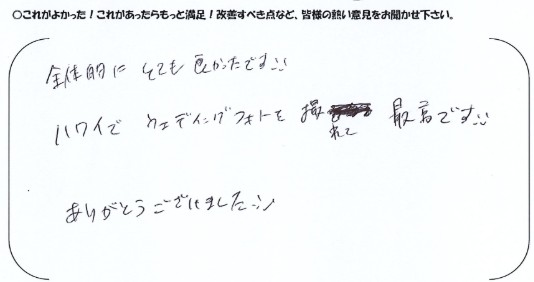 ○これがよかった！これがあったらもっと満足！改善すべき点など、皆様の熱い意見をお聞かせ下さい。
全体的に とても 良かったです
ハワイで ウェディングフォトを 撮れて 最高です
ありがとうございました